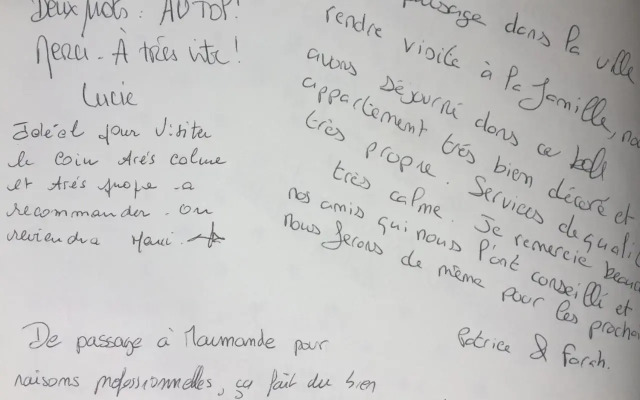 Deux Mots : AU TOP!
Merci - À très vite!
Lucie
Idéal pour visiter
le coin très calme
et très propre - a
recommander - on
reviendra
passage dans la ville
rendre visite à la famille,
avons séjourné dans ce bel
appartement très bien décoré et
très propre. Services de
très calme. Je remercie
nos amis qui nous l'ont conseillé et
nous ferons de même pour les
Patrice & Farah.
De passage à Marmande pour
raisons professionnelles, ça fait du bien